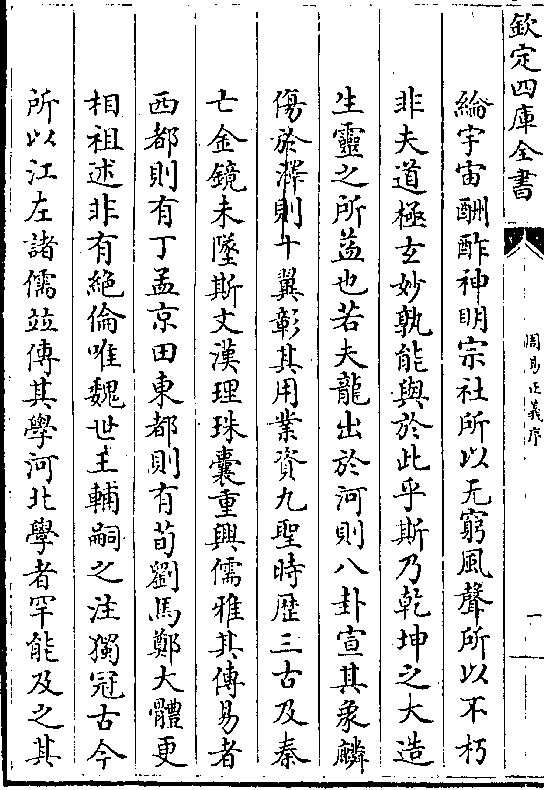 欽定四庫全書
周易正義序
一
綸宇宙酬酢神明宗社所以无窮風聲所以不朽
非夫道極玄妙孰能與於此乎斯乃乾坤之大造
生靈之所益也若夫龍出於河則八卦宣其象麟
傷於澤則十翼彰其用業資九聖時歴三古及秦
亡金鏡未墜斯文漢理珠囊重興儒雅其傳易者
西都則有丁孟京田東都則有荀劉馬鄭大體更
相祖述非有絶倫唯魏世王輔嗣之注獨冠古今
所以江左諸儒並傳其學河北學者罕能及之其